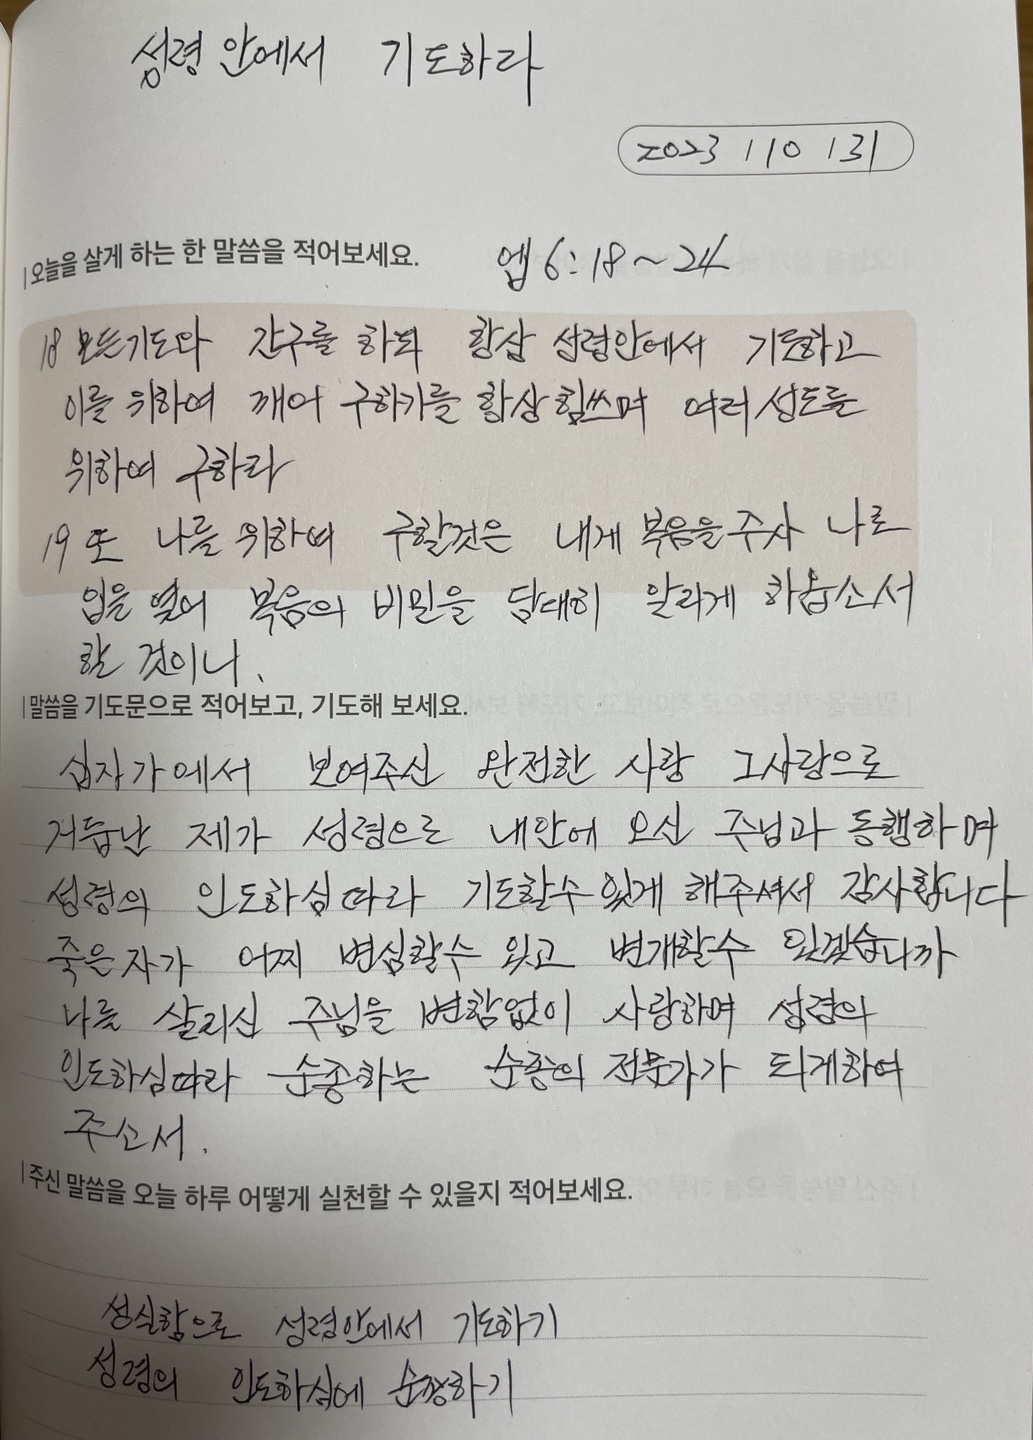 성령 안에서 기도하라
2023 / 10 / 31
오늘을 살게 하는 한 말씀을 적어보세요.
엡 6:18~24
18 모든기도와 간구를 하되 항상 성령안에서 기도하고
이를 위하여 깨어 구하기를 항상 힘쓰며 여러 성도를
위하여 구하라
19 또 나를 위하여 구할것은 내게 복음을 주사 나로
입을 열어 복음의 비밀을 담대히 알리게 하옵소서
할 것이니.
말씀을 기도문으로 적어보고, 기도해 보세요.
십자가에서 보여주신 완전한 사랑 그사랑으로
거듭난 제가 성령으로 내안에 오신 주님과 동행하며
성령의 인도하심 따라 기도할수 있게 해주셔서 감사합니다
죽은 자가 어찌 변심할수 있고 변개할수 있겠습니까
나를 살리신 주님을 변함없이 사랑하며 성령의
인도하심따라 순종하는 순종의 전문가가 되게하여
주소서.
주신 말씀을 오늘 하루 어떻게 실천할 수 있을지 적어보세요.
성실함으로 성령안에서 기도하기
성령의 인도하심에 순종하기